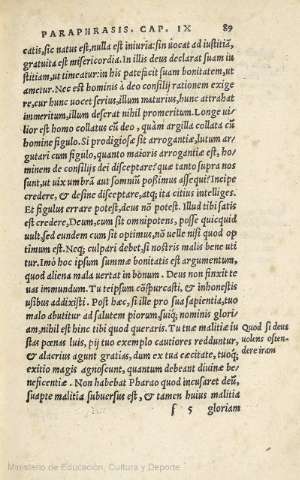 PARAPHRASIS. CAP. IX 89
catis, sic natus est, nulla est iniuria: sin uocat ad iustitiã,
gratuita est misericordia. In illis deus declarat suam iu
stitiam, ut timeatur: in his patefacit suam bonitatem, ut
ametur. Nec est hominis à deo consilij rationem exige
re, cur hunc uocet serius, illum maturius, hunc attrahat
immeritum, illum deserat nihil promeritum. Longe ui/
lior est homo collatus cũ deo, quàm argilla collata cũ
homine figulo. Si prodigiosæ sit arrogantiæ, lutum ar/
gutari cum figulo, quanto maioris arrogantiæ est, ho/
minem de consilijs dei disceptare? quæ tanto supra nos
sunt, ut uix umbrã aut somniũ possimus assequi? Incipe
credere, & desine disceptare, atq; ita citius intelliges.
Et figulus errare potest, deus nõ potest. Illud tibi satis
est credere, Deum, cum sit omnipotens, posse quicquid
uult, sed eundem cum sit optimus, nõ uelle nisi quod op
timum est. Necq; culpari debet, si nostris malis bene uti
tur. Imò hoc ipsum summæ bonitatis est argumentum,
quod aliena mala uertat in bonum. Deus non finxit te
uas immundum. Tu teipsum cõspurcasti, & inhonestis
usibus addixisti. Post hæc, si ille pro sua sapientia, tuo
malo abutitur ad salutem piorum, suiq; nominis glori/
am, nihil est hinc tibi quod queraris. Tu tuæ malitiæ iu
stas pœnas luis, pij tuo exemplo cautiores redduntur,
& alacrius agunt gratias, dum ex tua cæcitate, tuoq;
exitio magis agnoscunt, quantum debeant diuinæ be/
neficentiæ. Non habebat Pharao quod incusaret deũ,
suapte malitia subuersus est, & tamen huius malitia
f 5 gloriam
Quod si deus
uolens osten-
dere iram
Ministerio de Educación, Cultura y Deporte